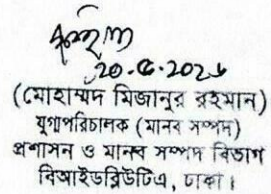 ২০.৫.২০২৬
(মোহাম্মদ মিজানুর রহমান)
যুগ্মপরিচালক (মানব সম্পদ)
প্রশাসন ও মানব সম্পদ বিভাগ
বিআইডব্লিউটিএ, ঢাকা।